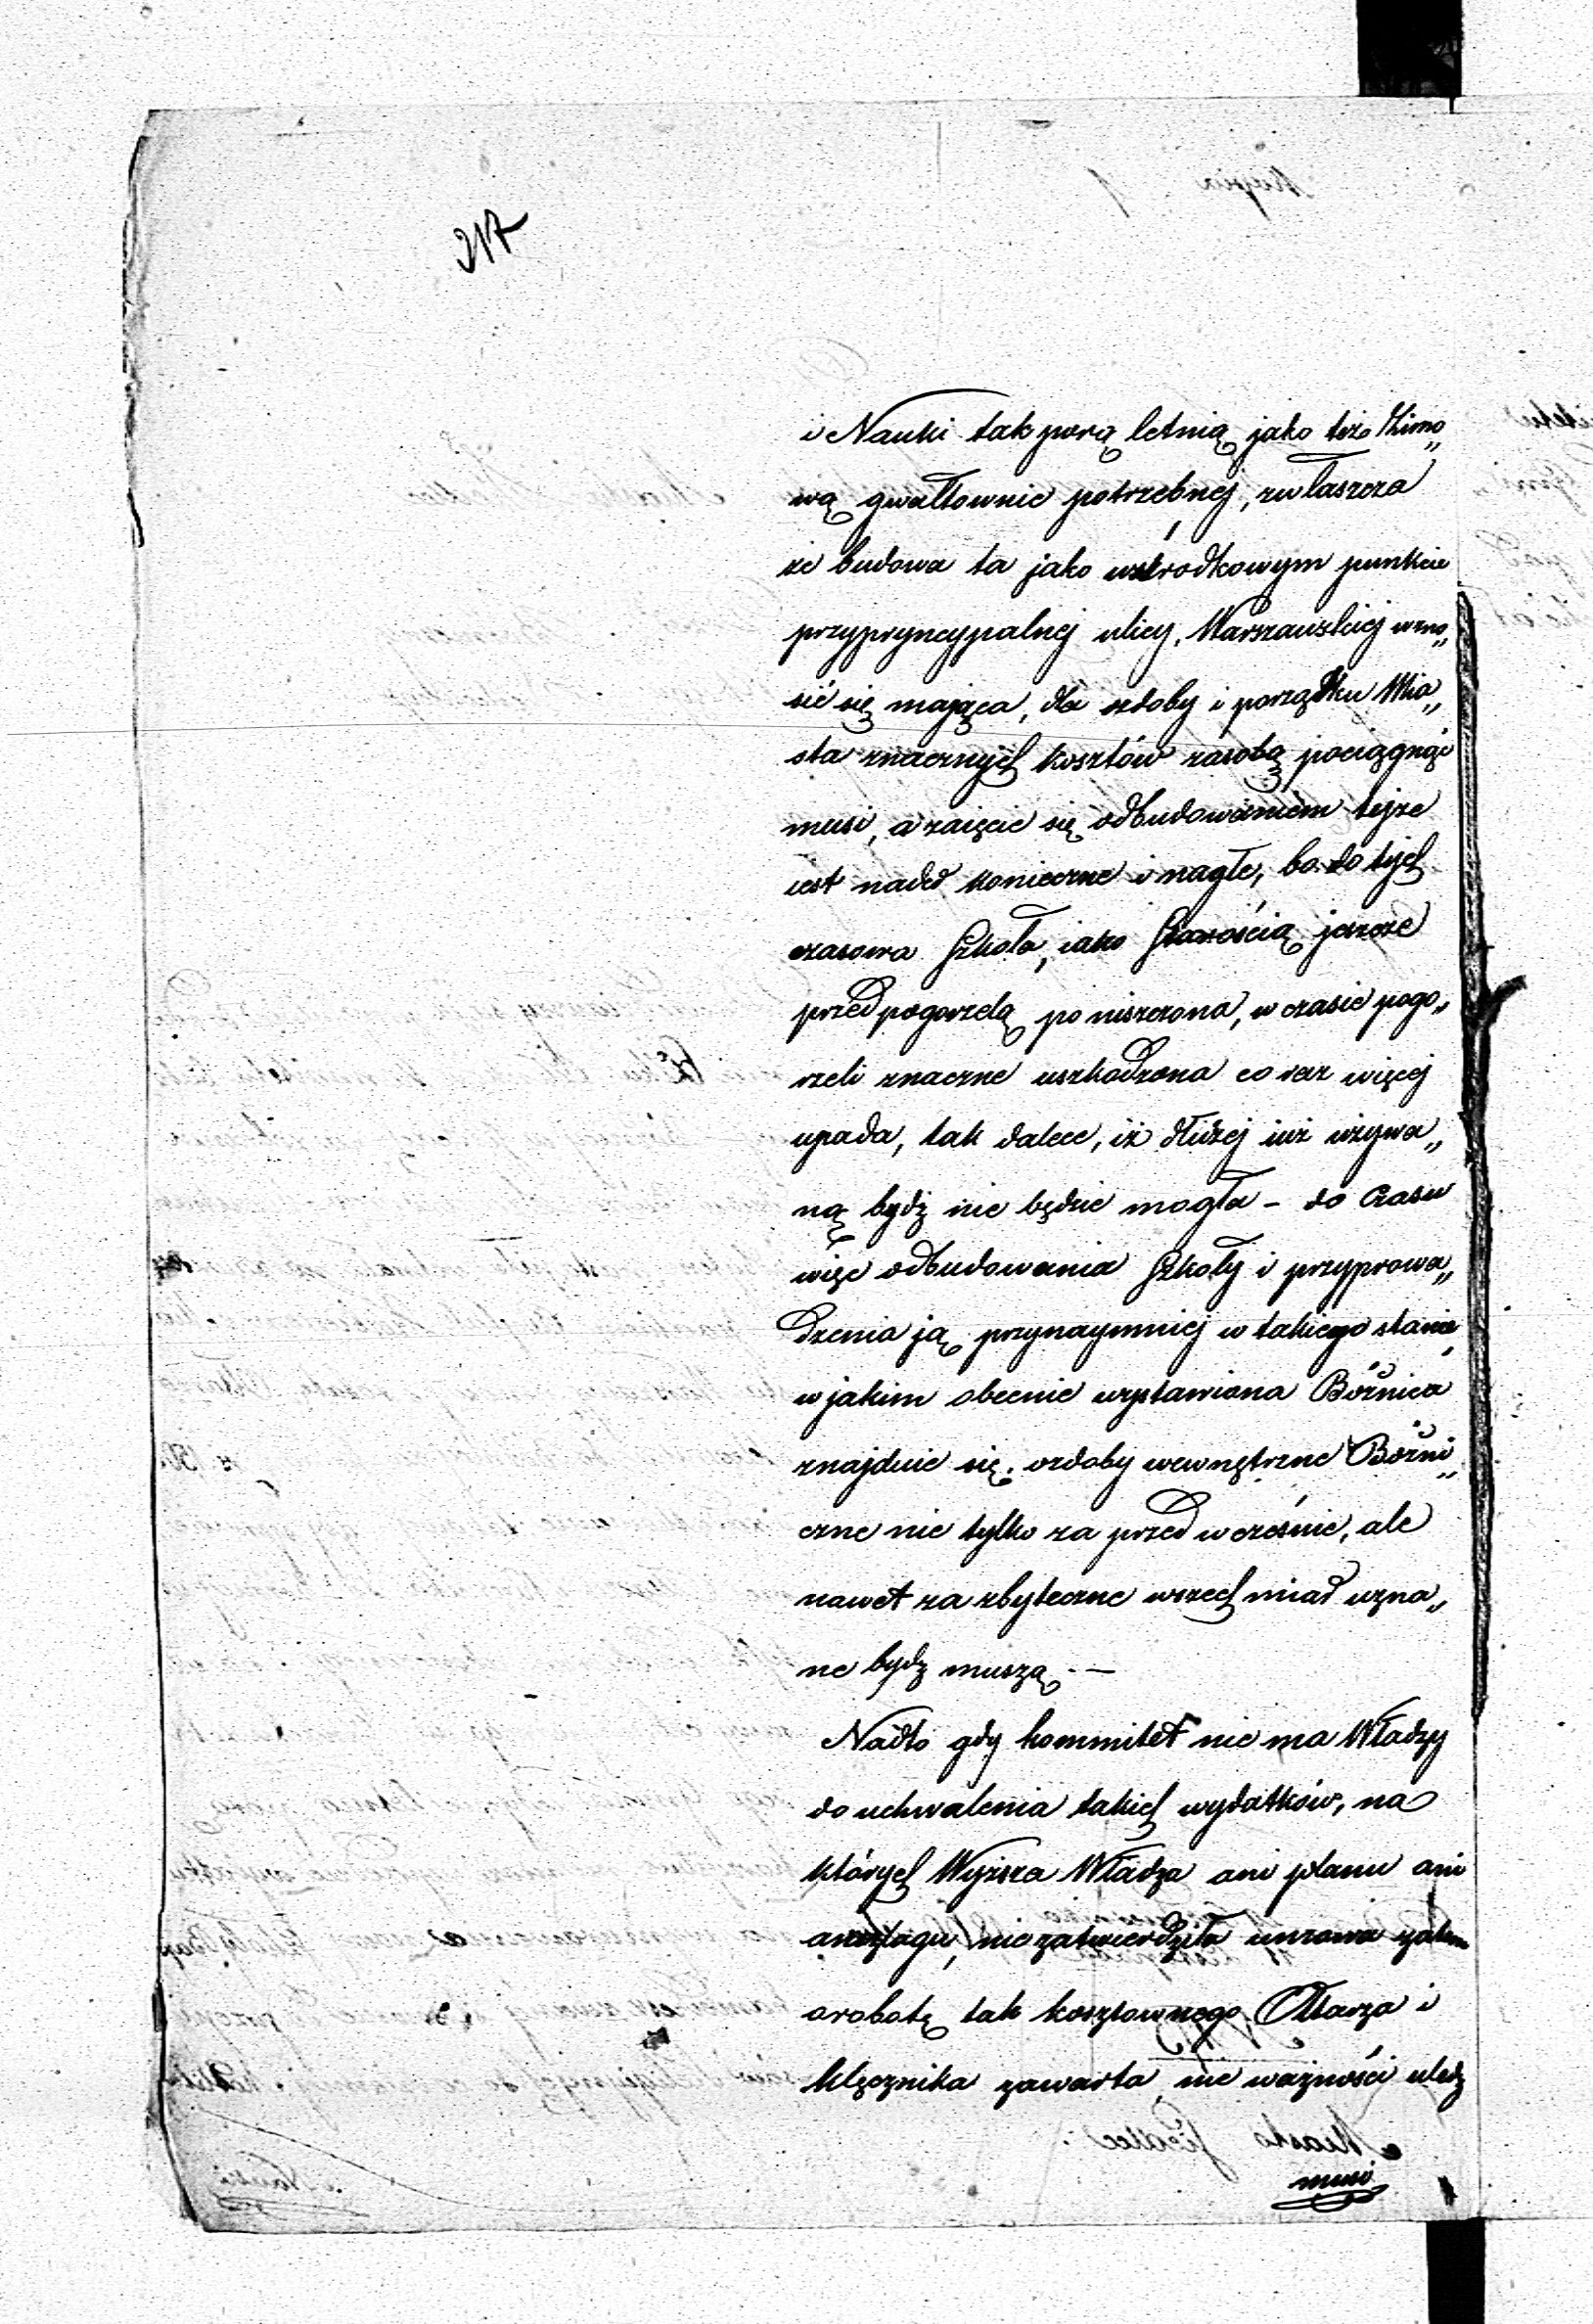 217
i Nauki tak porą letnią jako też Zimo„
wą gwałtownie potrzebnej, zwłaszcza
że budowa ta jako wśrodkowym punkcie
przypryncypalnej ulicy, Warszawskiej wzno„
sić się mająca, dla ozdoby i porządku Mia„
sta znacznych kosztów zasobą pociągnąć
musi, a zaięcie się odbudowaniem tejże
iest nader konieczne i nagłe, bo do tych
czasowa Szkoła, iako Starością jeszcze
przed pogorzelą po niszczona, w czasie pogo„
rzeli znaczne uszkodzona co raz więcej
upada, tak dalece, iż dłużej iuż używa„
ną bydź nie będzie mogła – do Czasu
więc odbudowania Szkoły i przyprowa„
dzenia ją przynaymniej w takiego stanie
w jakim obecnie wystawiona Bóżnica
znajduie się, ozdoby wewnętrzne Bóżni„
czne nie tylko za przed wcześnie, ale
nawet za zbyteczne wszech miar uzna„
ne bydz muszą. —
Nadto gdy kommitet nie ma Władzy
do uchwalenia takich wydatków, na
których Wyższa Władza ani planu ani
anszlagu, nie zatwierdziła umowa zatem
o robotę tak kosztownego Ołtarza i
klęcznika zawarta nie ważności uledz
musi